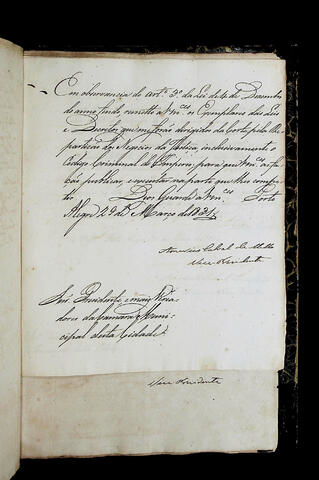 Em observancia do artº 3º da Lei de 4 de Dezembro
do anno findo, remetto a Vmces os Exemplares das Leis
e Decretos, que me forão dirigidos da Corte pela Re
partição dos Negocios da Justiça, inclusivamente o
Codigo Criminal do Imperio, para que Vmces os fa
ção publicar, e executar na parte que lhes compe
te. Deos Guarde a Vmces Porto
Alegre 29 de Março de 1831
Americo Cabral de Mello
Vice Presidente
Snrs. Presidente, e mais Verea
dores da Camara Muni-
cipal desta Cidade.
Vice Presidente